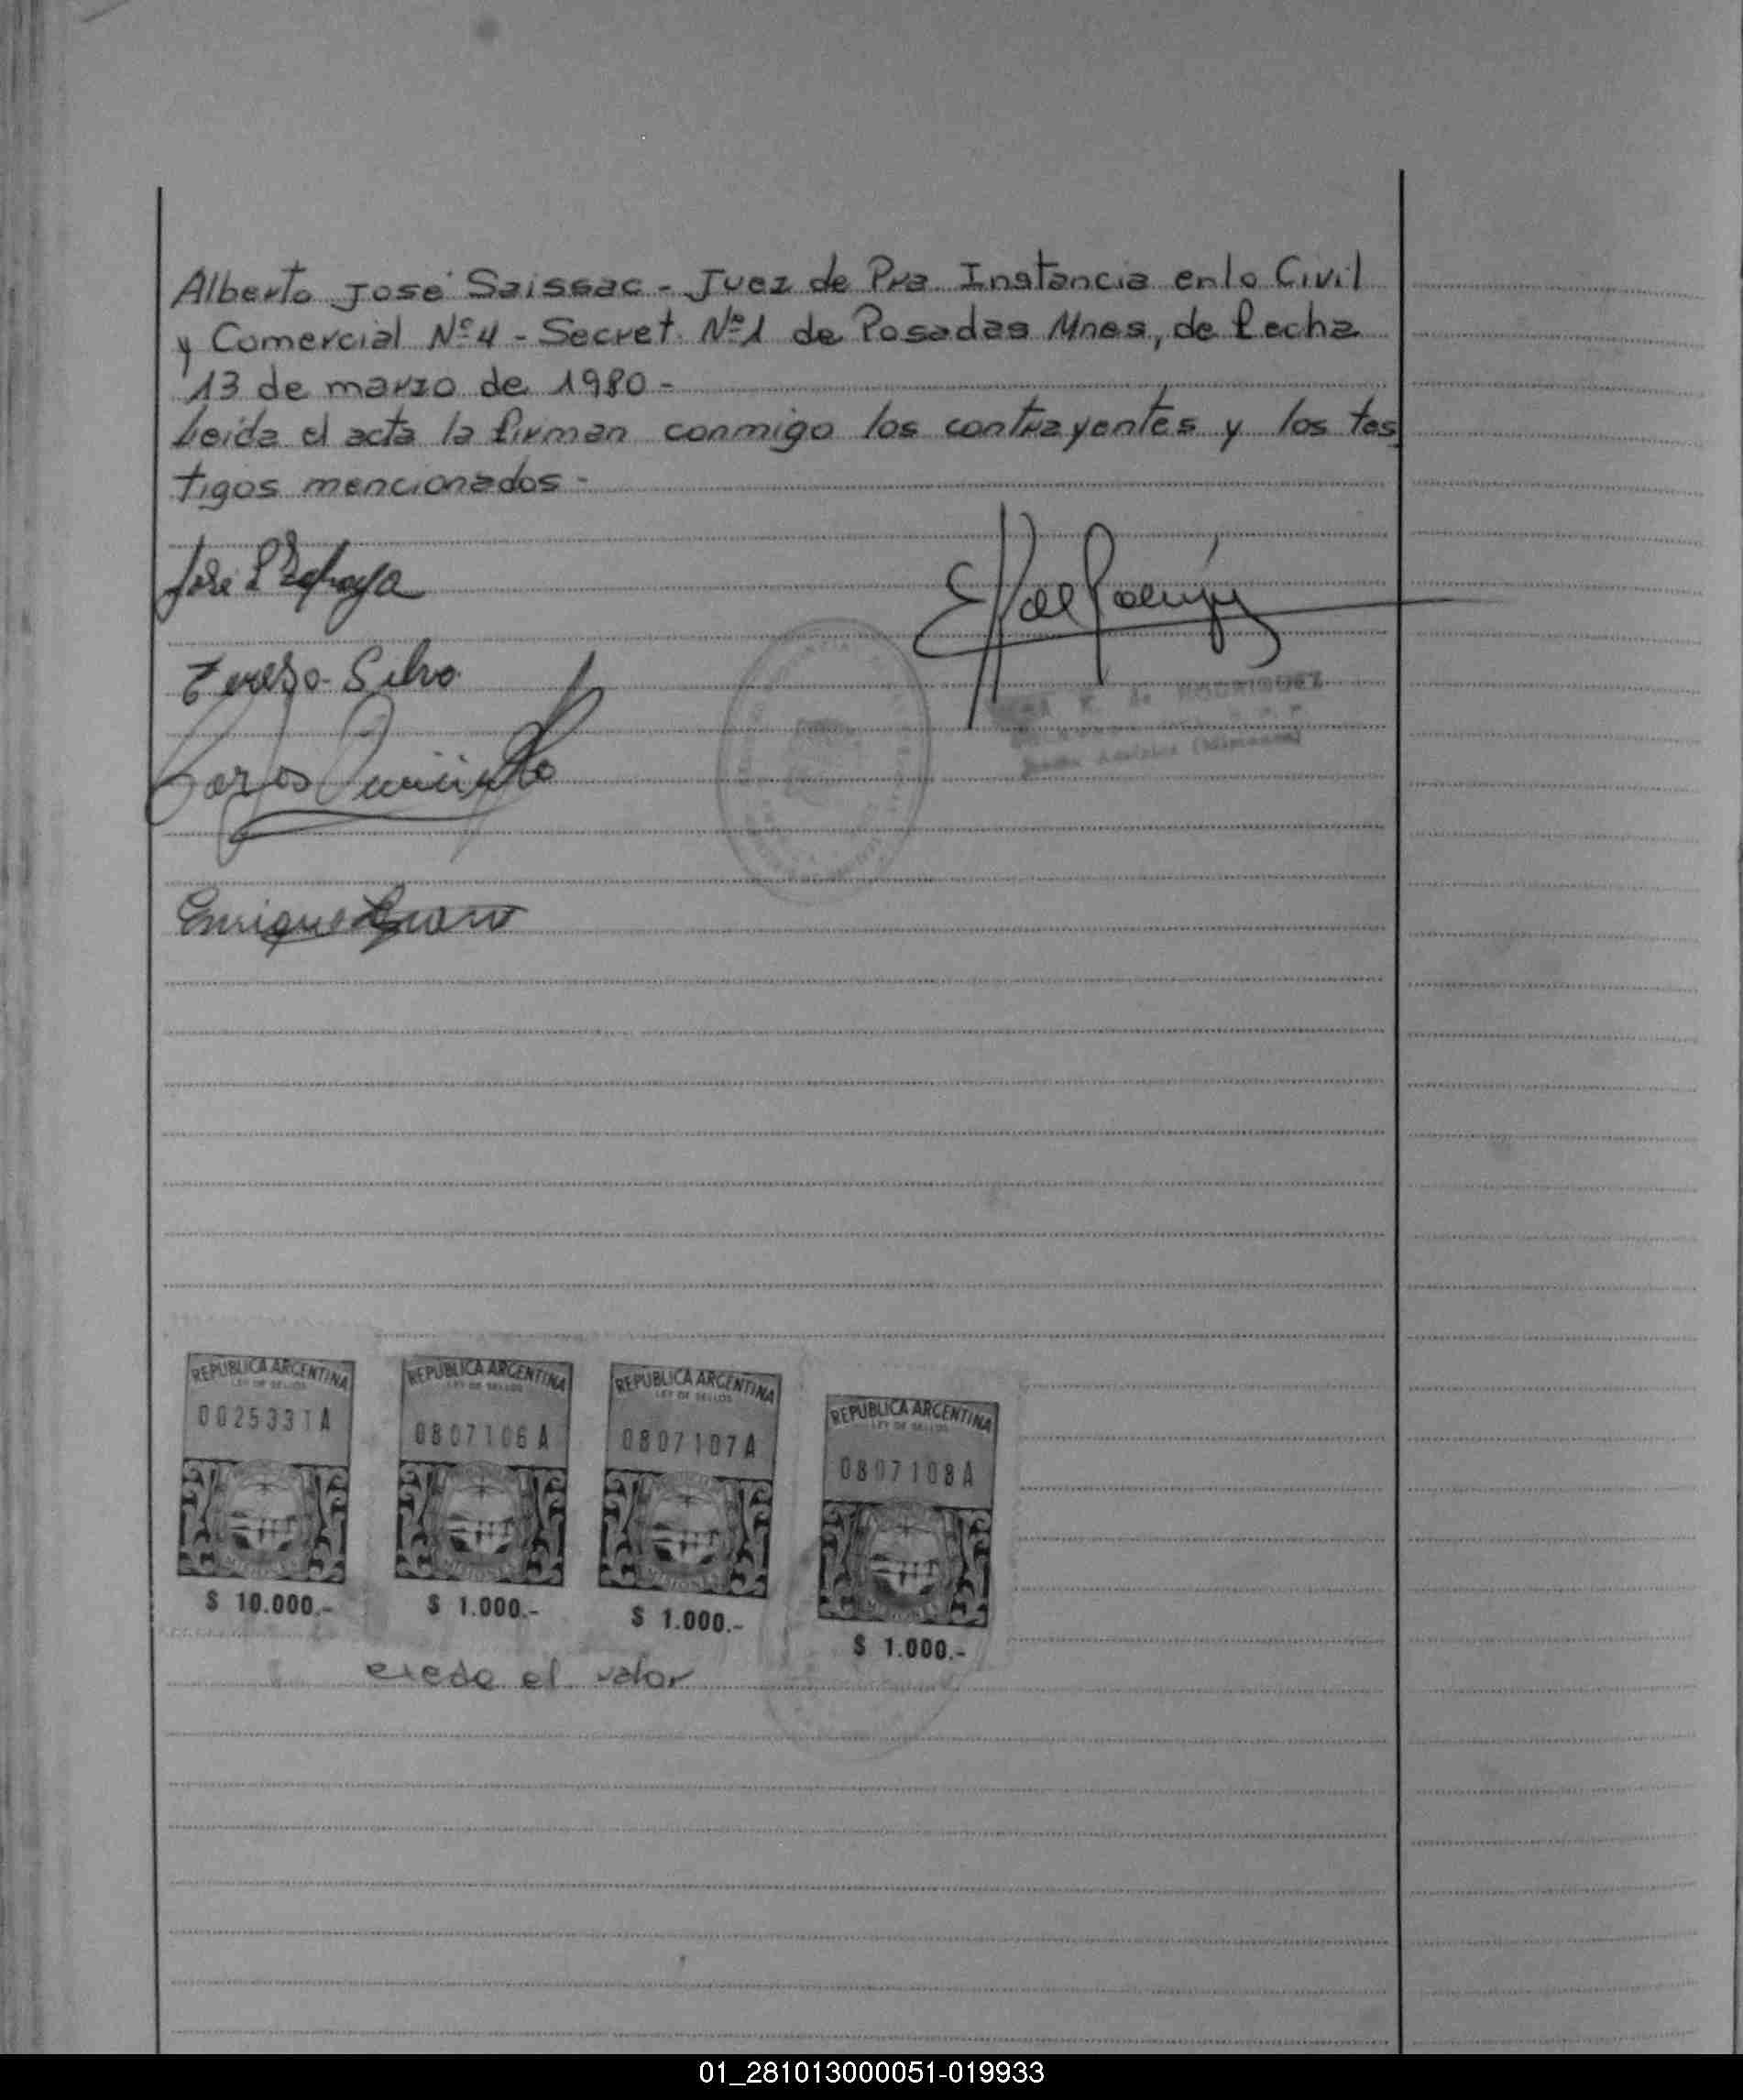 Alberto José Saissac - Juez de Pra Instancia en lo Civil
y Comercial Nº 4 - Secret. Nº 1 de Posadas Mnes, de fecha
13 de marzo de 1980 -
Leída el acta la firman conmigo los contrayentes y los tes
tigos mencionados -
José
Tereza Silva
Carlos
Enrique
RODRIGUEZ
REPUBLICA ARGENTINA
LEY DE SELLOS
0025331A
$ 10.000.-
REPUBLICA ARGENTINA
LEY DE SELLOS
0807106A
$ 1.000.-
REPUBLICA ARGENTINA
LEY DE SELLOS
0807107A
$ 1.000.-
REPUBLICA ARGENTINA
LEY DE SELLOS
0807108A
MISIONES
$ 1.000.-
exede el valor
01_281013000051-019933